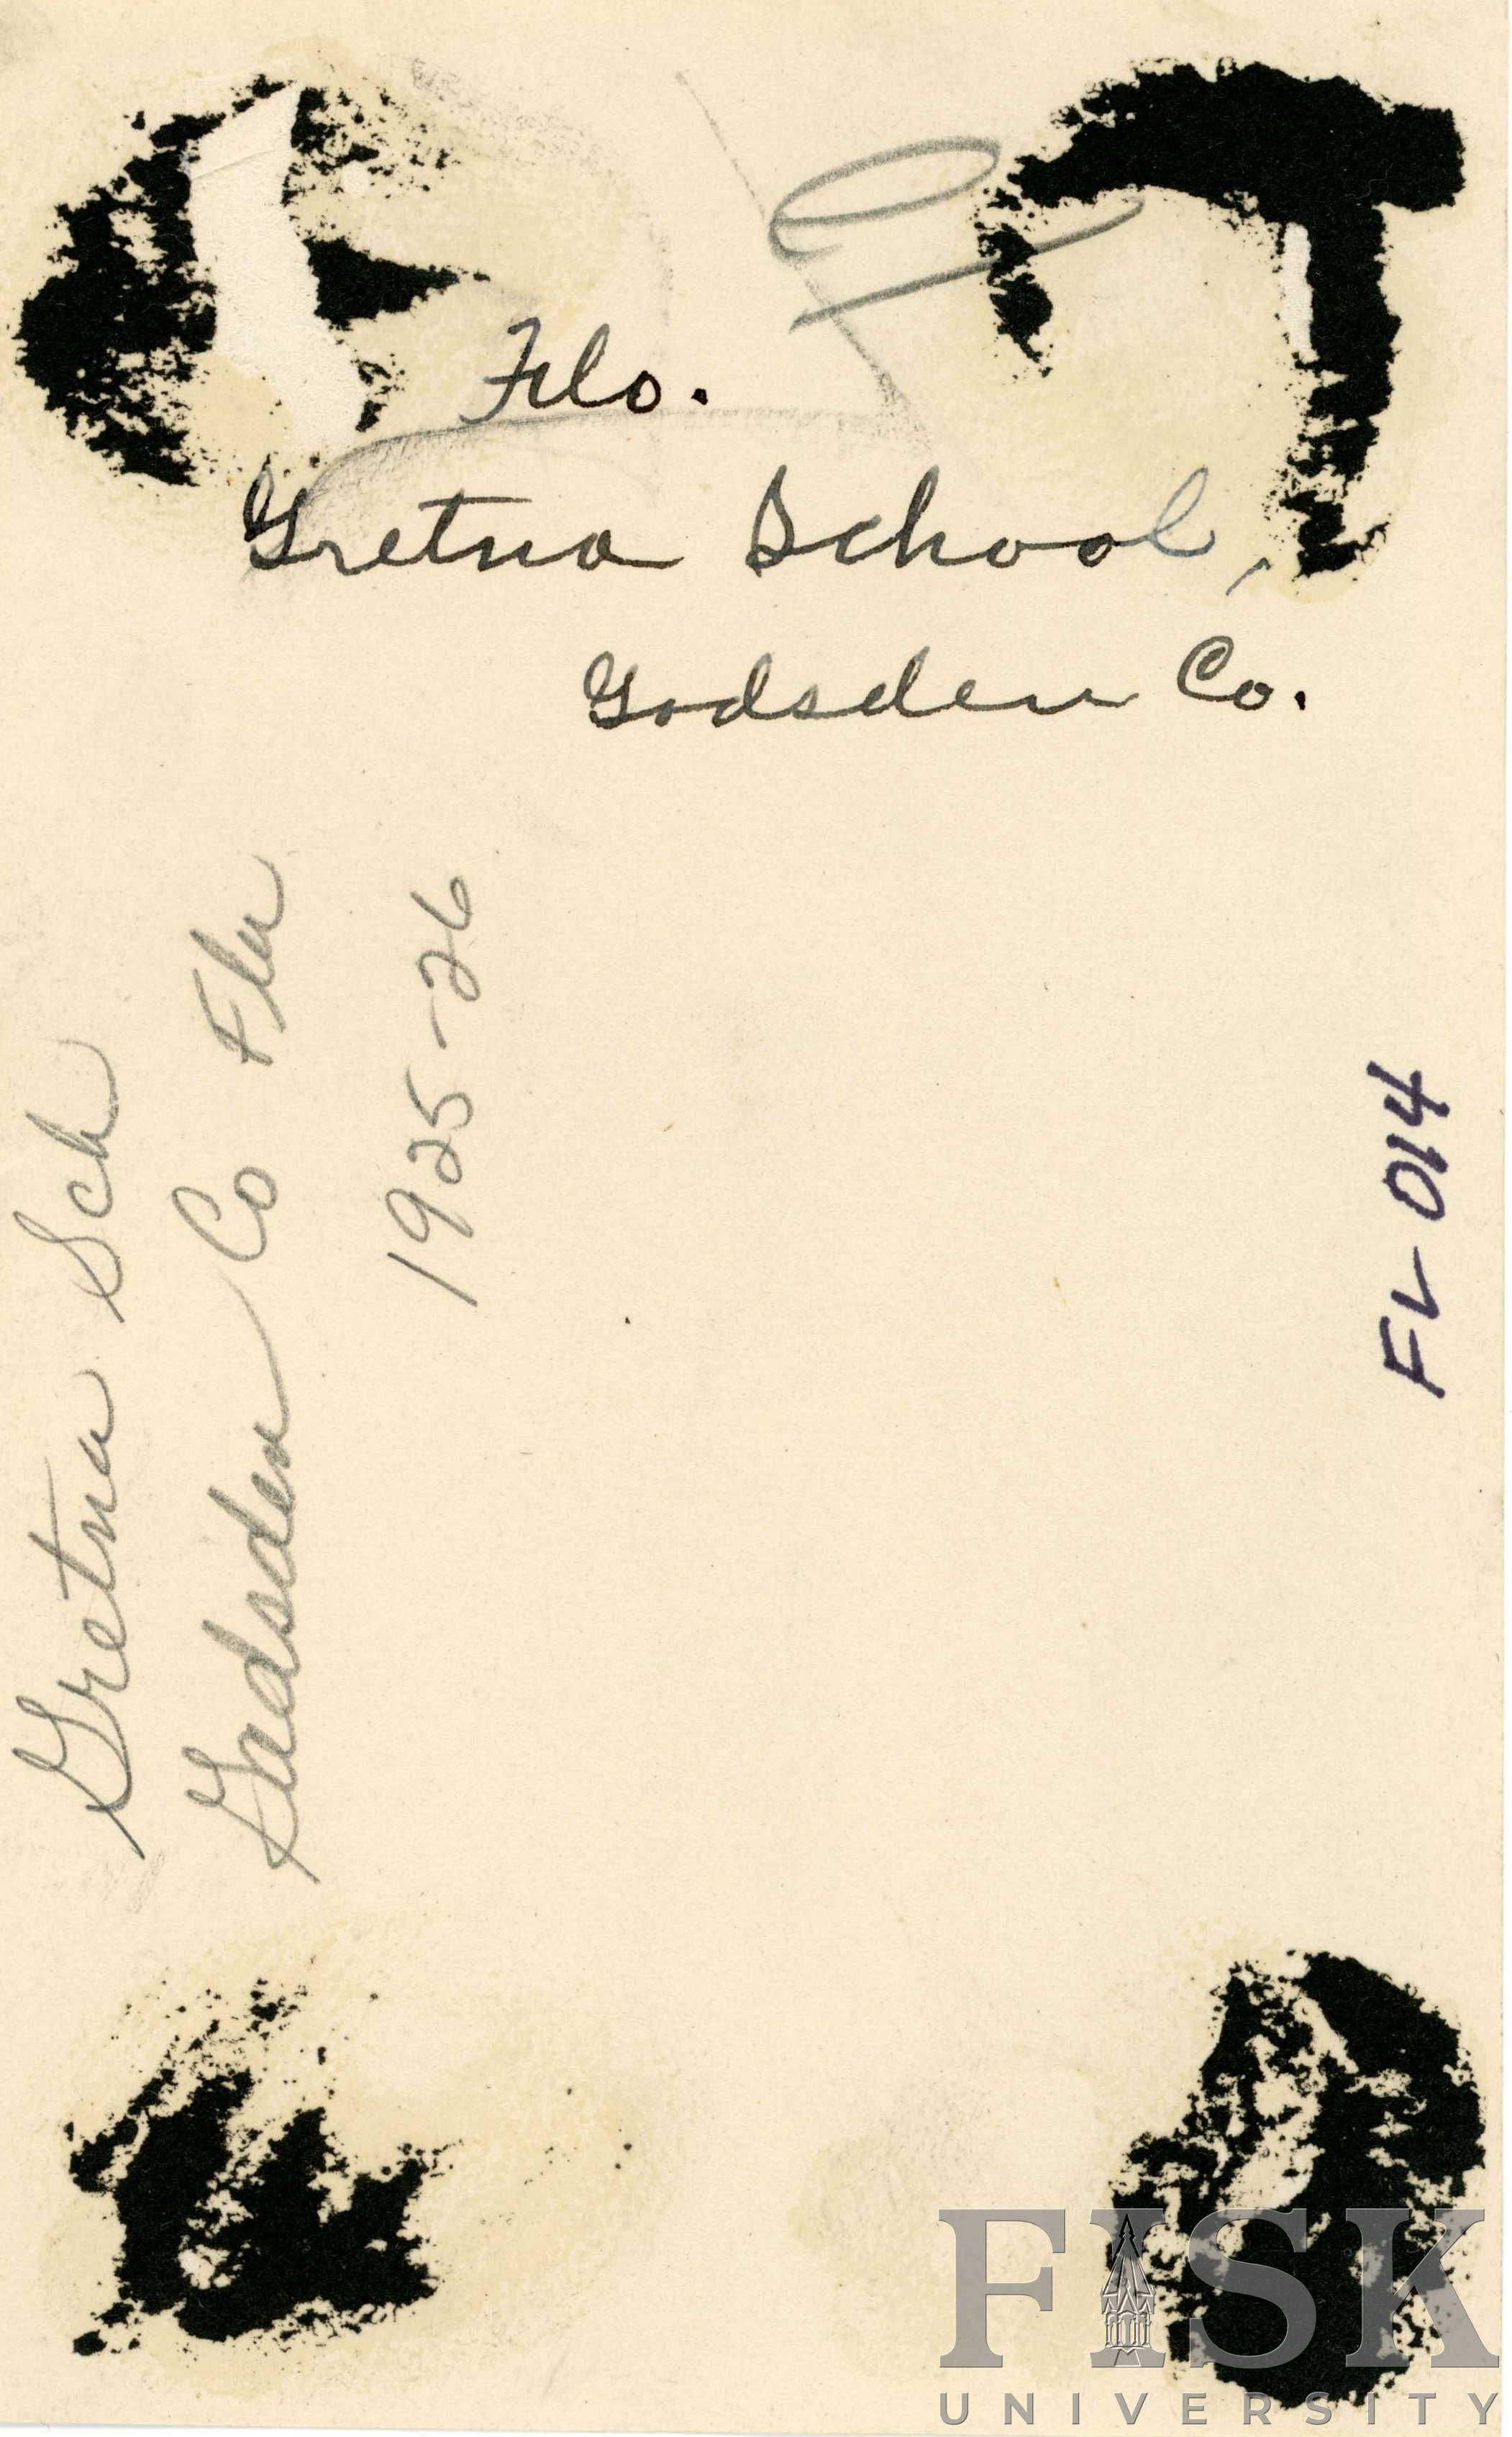 Fla.
Gretna School,
Gadsden Co.
Gretna Sch
Gadsden Co Fla
1925-26
FL-014
FISK
UNIVERSITY